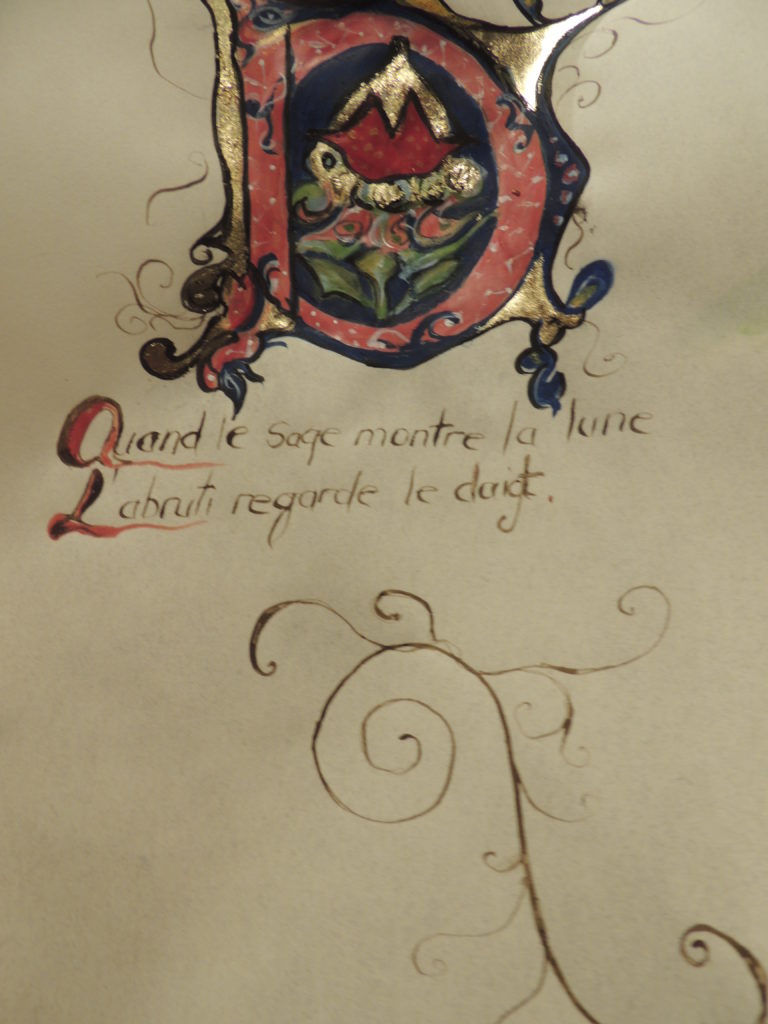 Quand le sage montre la lune
L'abruti regarde le doigt.